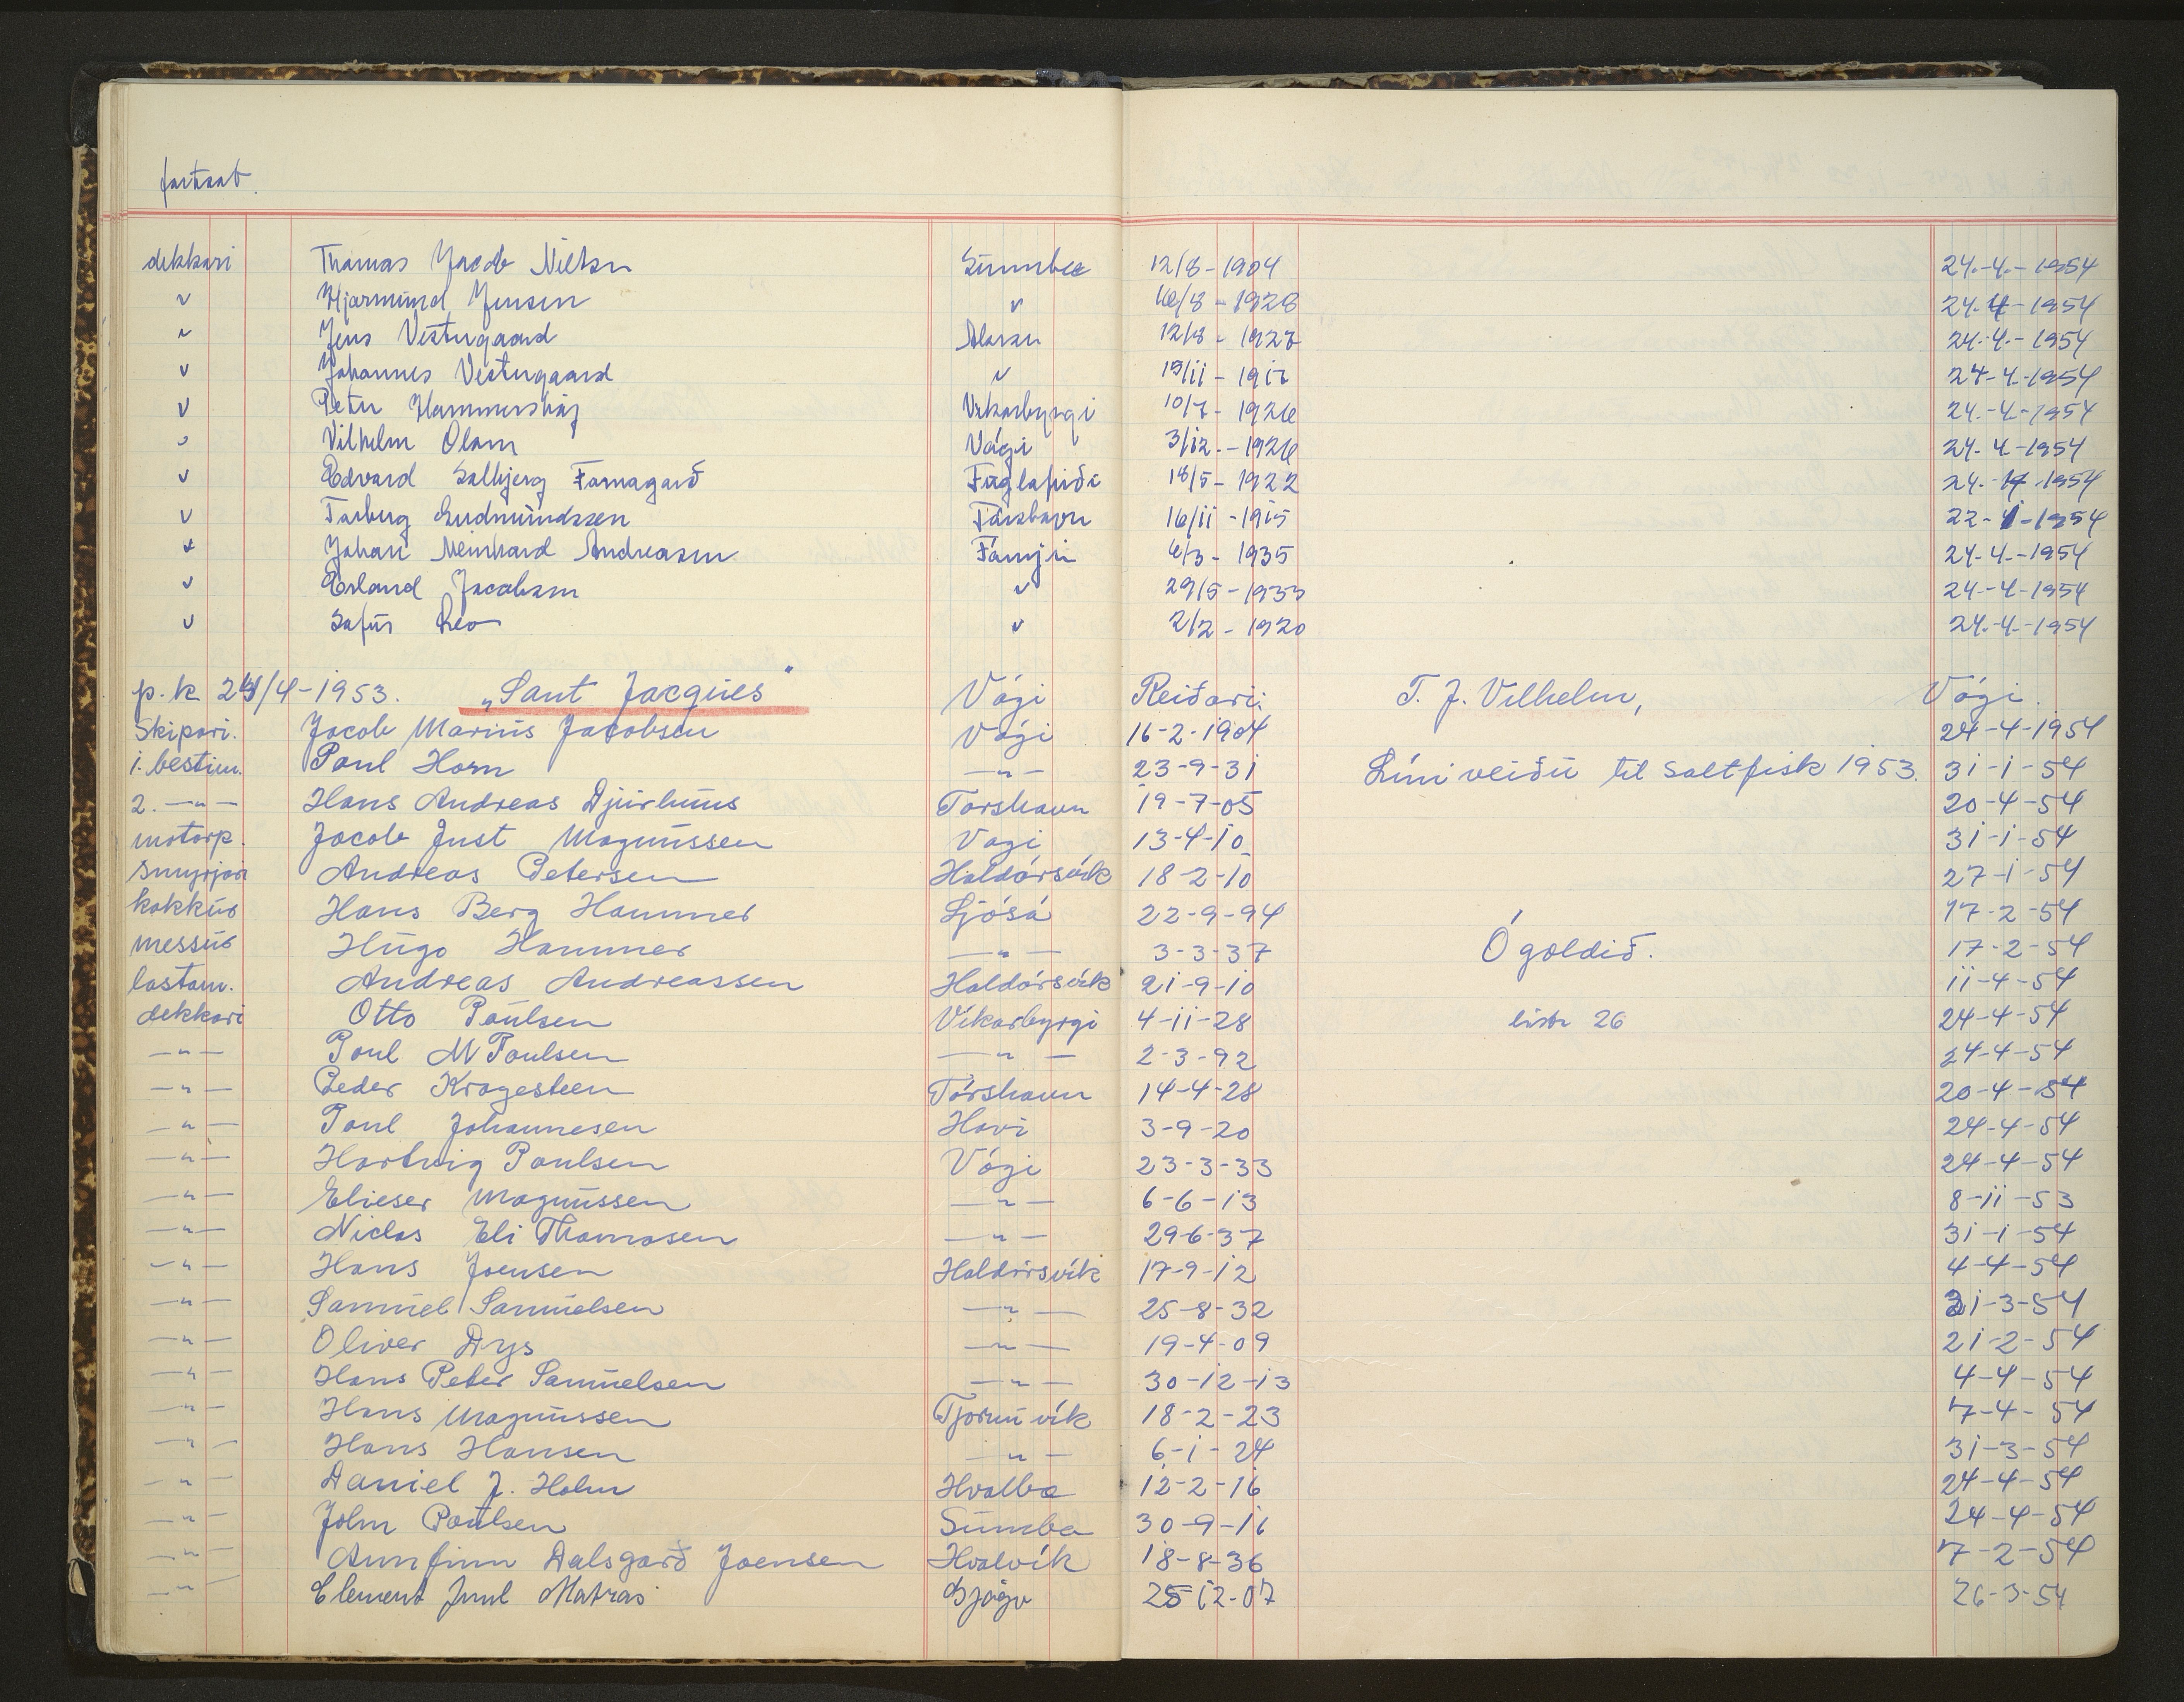 fortsat.
dekkari Thomas Jacob Nielsen Sumba 12/8-1904 24.-4.-1954
" Hjarmund Jensen " 16/8-1928 24.4-1954
" Jens Vestergaard 12/8-1927 24.-4.-1954
" Johannes Vestergaard " 19/11-1917 24-4-1954
" Petur Hammershøj Vikarbyrgi 10/7-1926 24.-4-1954
" Vilhelm Olsen Vági 3/12.-1926 24.4-1954
" Edvard Solbjerg Fuglafirði 18/5-1922 24.-4-1954
" Torberg Gudmundssen Tórshavn 16/11-1915 22-4-1954
" Johan Meinhard Andreasen Fámjin 6/3-1935 24-4.-1954
" Erland Jacobsen " 29/5-1933 24.-4-1954
" Sofus " 2/2-1920 24.-4.-1954
p.k 24/4-1953. „Sant Jacques" Vági Reiðari: T. J. Vilhelm, Vági.
Skipari. Jacob Marius Jacobsen Vági 16-2-1904 24-4-1954
1. bestim. Poul Horn -"- 23-9-31 Líniveiðu til saltfisk 1953. 31-1-54
2. -"- Hans Andreas Djurhuus Torshavn 19-7-05 20-4-54
motorp. Jacob Just Magnussen Vagi 13-4-10 31-1-54
smyrjari Andreas Petersen Haldórsvík 18-2-10 27-1-54
kokkur Hans Berg Hammer Ljósá 22-9-94 17-2-54
messur Hugo Hammer -"- 3-3-37 Ógoldið. 17-2-54
lastam. Andreas Andreassen Haldórsvík 21-9-10 11-4-54
dekkari Otto Poulsen Víkarbyrgi 4-11-28 listi 26 24-4-54
-"- Poul M Poulsen -"- 2-3-92 24-4-54
-"- Peder Kragesteen Tórshavn 14-4-28 20-4-54
-"- Poul Johannesen Hovi 3-9-20 24-4-54
-"- Hartvig Poulsen Vági 23-3-33 24-4-54
-"- Elieser Magnussen -"- 6-6-13 8-11-53
-"- Niclas Eli Thomasen -"- 29-6-37 31-1-54
-"- Hans Joensen Haldórsvík 17-9-12 4-4-54
-"- Samuel Samuelsen -"- 25-8-32 31-3-54
-"- Oliver Dys -"- 19-4-09 21-2-54
-"- Hans Peter Samuelsen -"- 30-12-13 4-4-54
-"- Hans Magnussen Tjørnuvík 18-2-23 7-4-54
-"- Hans Hansen -"- 6-1-24 31-3-54
-"- Daniel J. Holm Hvalba 12-2-16 24-4-54
-"- John Poulsen Sumba 30-9-16 24-4-54
-"- Aunfinn Dalsgarð Joensen Hvalvík 18-8-36 7-2-54
-"- Clement Juul Matras Gjógv 25-12-07 26-3-54